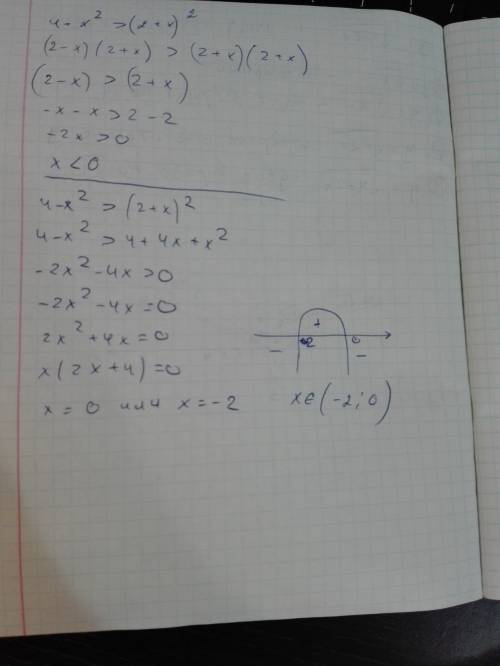 4 - x² > (2 + x)²
(2 - x)(2 + x) > (2 + x)(2 + x)
(2 - x) > (2 + x)
-x - x > 2 - 2
-2x > 0
x < 0
4 - x² > (2 + x)²
4 - x² > 4 + 4x + x²
-2x² - 4x > 0
-2x² - 4x = 0
2x² + 4x = 0
x(2x + 4) = 0
x = 0 или x = -2
+
-2 0
- -
x ∈ (-2; 0)